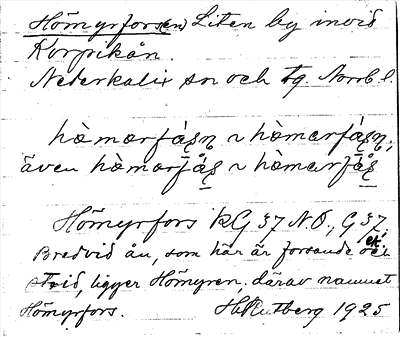 Hömyrforsen, Liten by invid
Korpikån.
Nederkalix sn och tg. Norrb. l.
hòmœrfásņ ~ hòmœrfásņ;
även hòmœrfås ~ hòmœrfås
Hömyrfors kG 37 N.O., G 37, ek.
Bredvid ån, som här är forsande och
strid, ligger Hömyren, därav namnet
Hömyrfors. H. Rutberg 1925